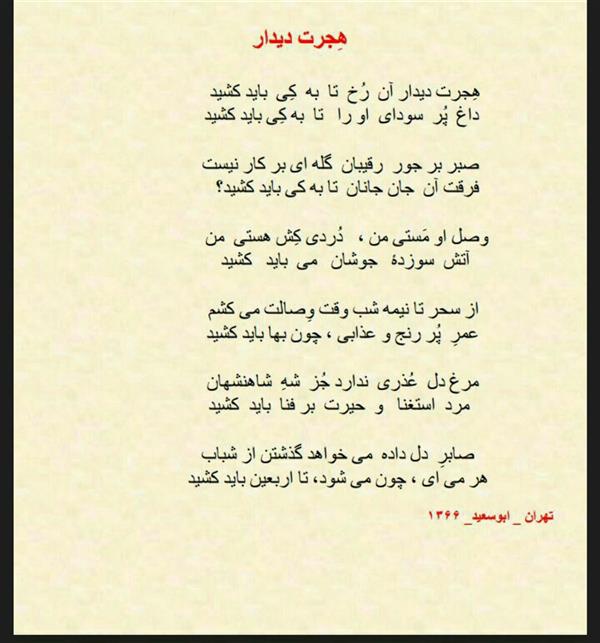 هِجرت دیدار
هِجرت دیدار آن رُخ تا به کِی باید کشید
داغ پُر سودای او را تا به کِی باید کشید
صبر بر جور رقیبان گله ای بر کار نیست
فرقت آن جان جانان تا به کی باید کشید؟
وصل او مَستی من ، دُردی کِش هستی من
آتش سوزدهٔ جوشان می باید کشید
از سحر تا نیمه شب وقت وِصالت می کشم
عمرِ پُر رنج و عذابی ، چون بها باید کشید
مرغ دل عُذری ندارد جُز شهِ شاهنشهان
مرد استغنا و حیرت بر فنا باید کشید
صابرِ دل داده می خواهد گذشتن از شباب
هر می ای ، چون می شود، تا اربعین باید کشید
تهران _ ابوسعید_ ۱۳۶۶